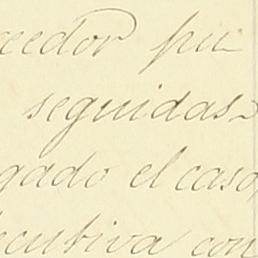 reedor pu
seguidas
gado el caso,
ecutiva con